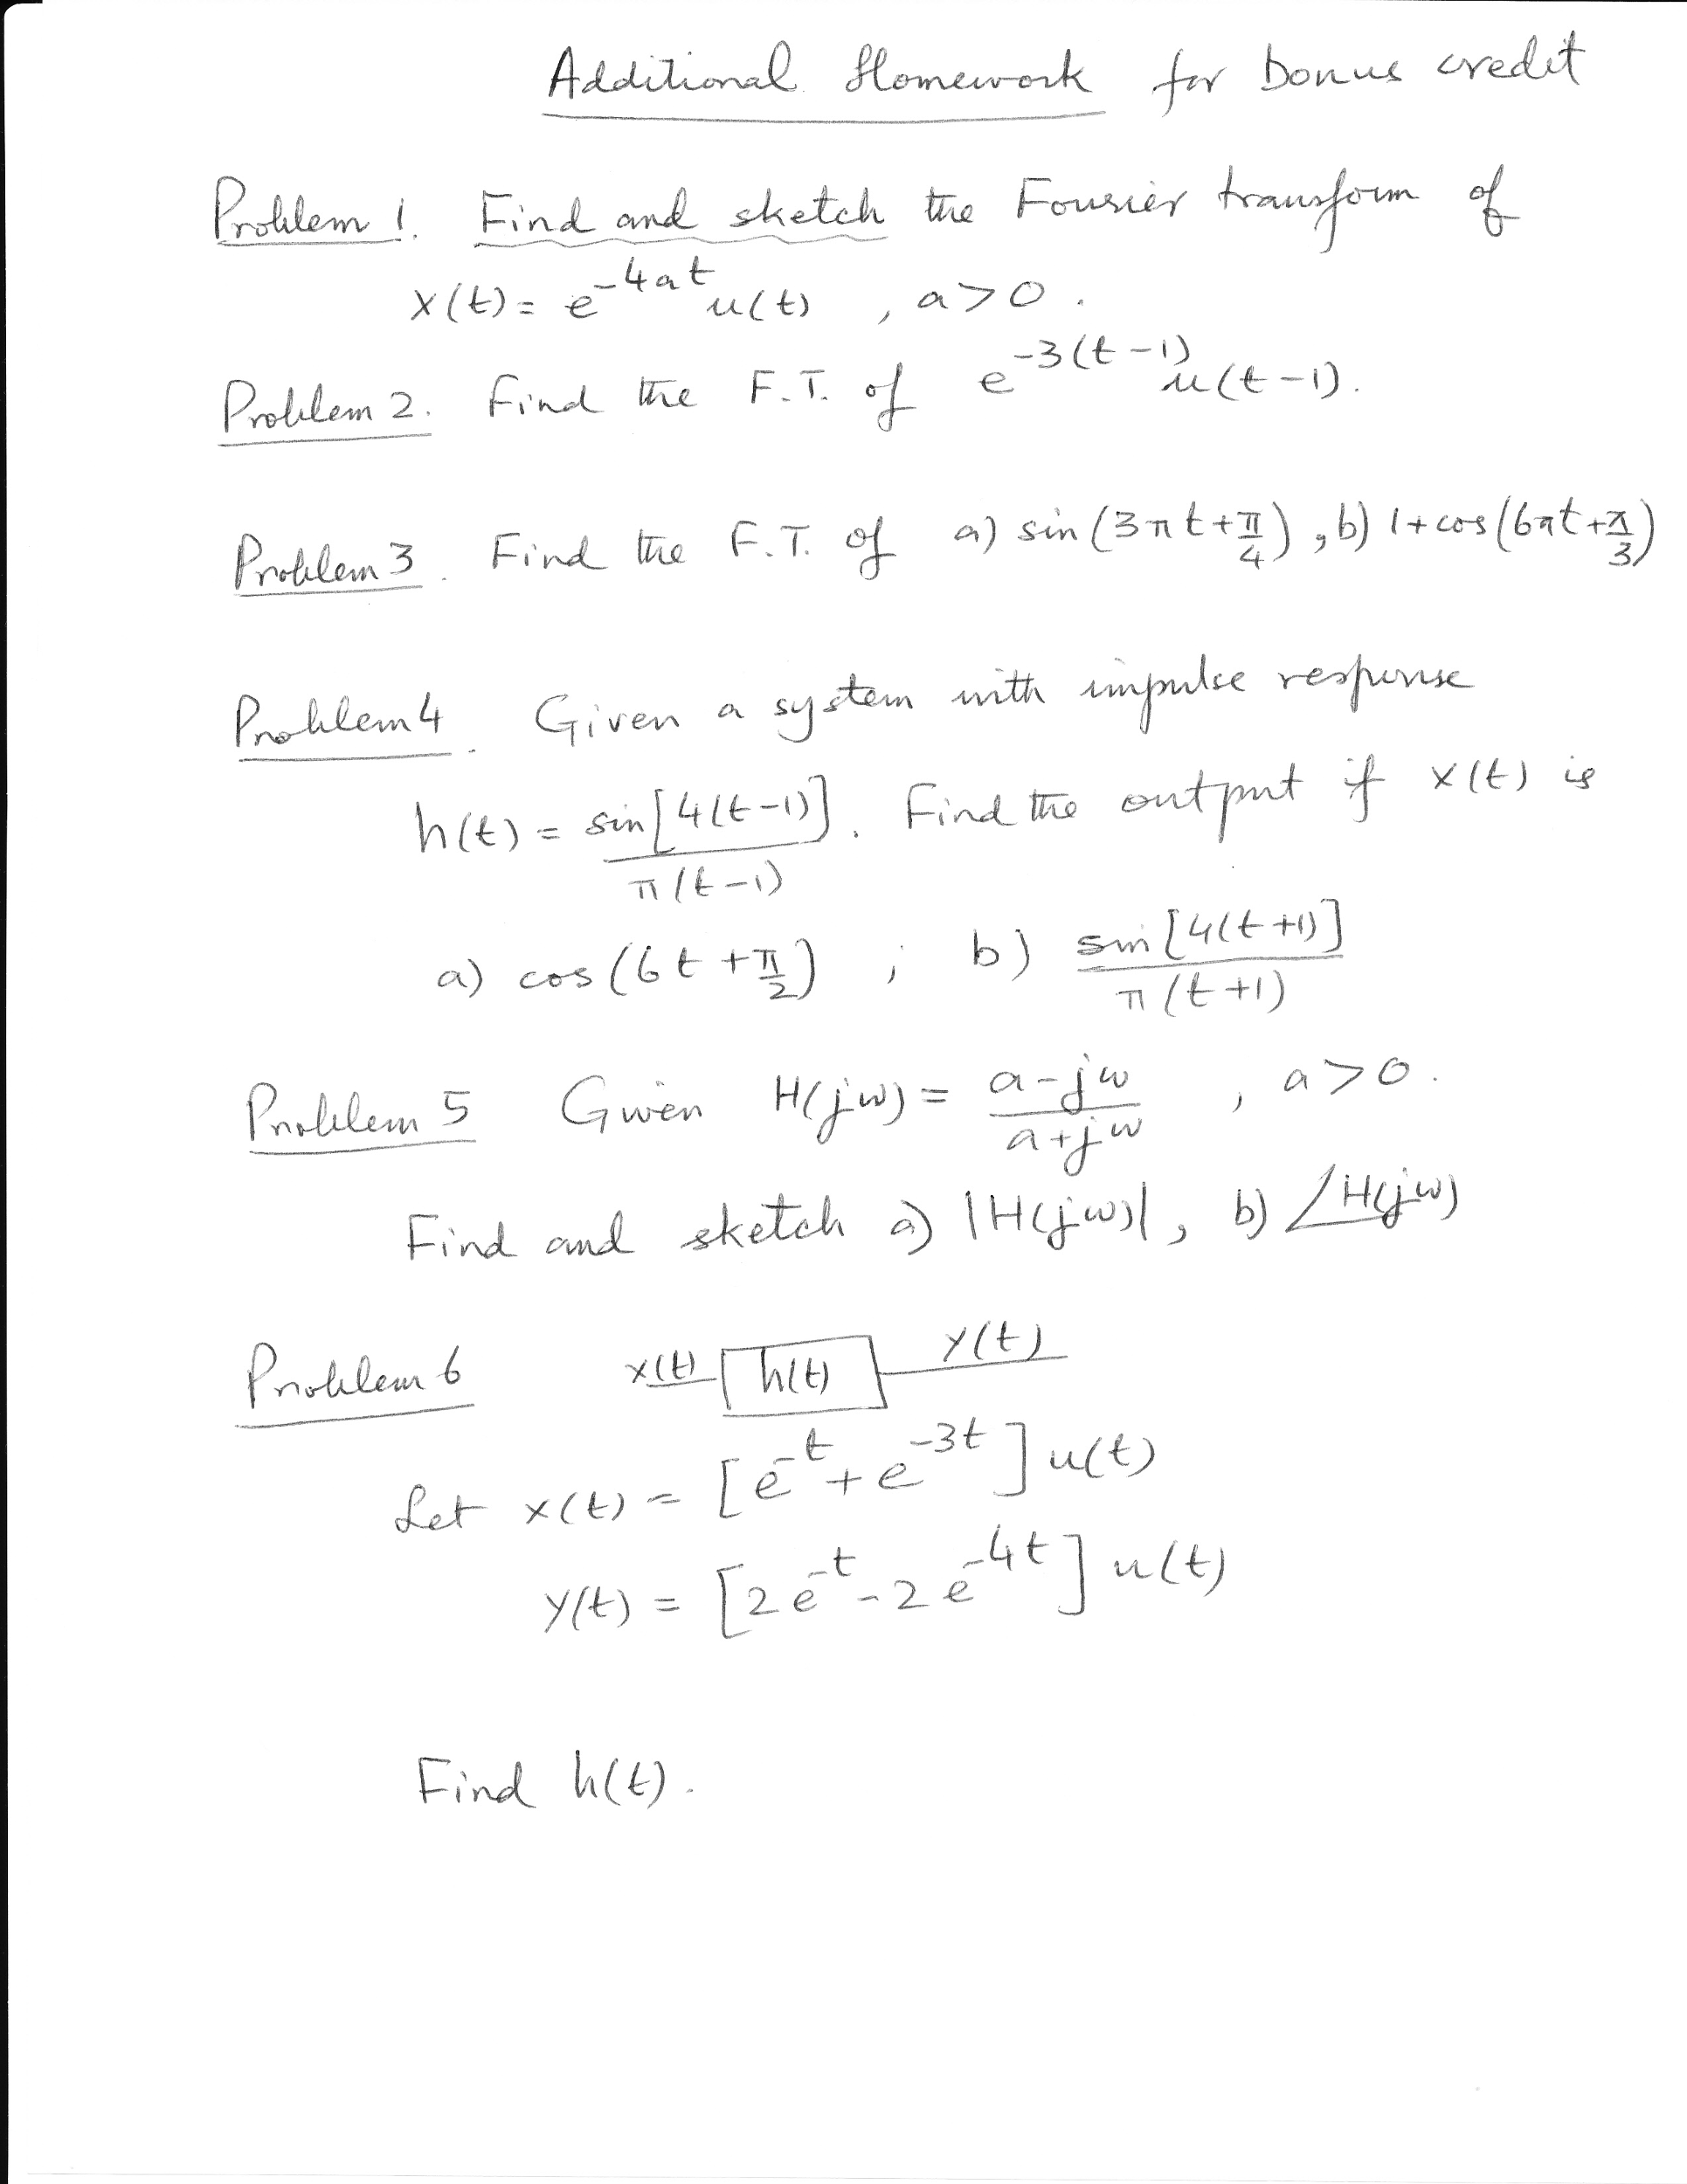 Additional Homework for bonus credit
Problem 1. Find and sketch the Fourier transform of
x(t) = e^{-4at} u(t) , a > 0 .
Problem 2. Find the F.T. of e^{-3(t-1)} u(t-1).
Problem 3. Find the F.T. of a) sin(3πt + π/4) , b) 1 + cos(6πt + π/3)
Problem 4. Given a system with impulse response
h(t) = sin[4(t-1)] / π(t-1) . Find the output if x(t) is
a) cos(6t + π/2) ; b) sin[4(t+1)] / π(t+1)
Problem 5 Given H(jω) = a-jω / a+jω , a > 0 .
Find and sketch a) |H(jω)| , b) ∠H(jω)
Problem 6 x(t) h(t) y(t)
Let x(t) = [e^{-t} + e^{-3t}] u(t)
y(t) = [2e^{-t} - 2e^{-4t}] u(t)
Find h(t).